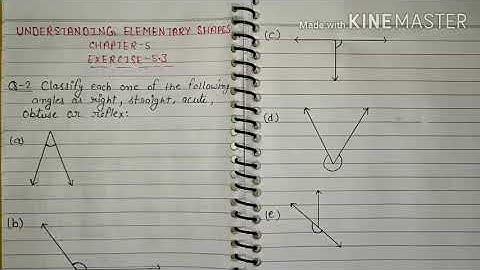 UNDERSTANDING ELEMENTARY SHAPES
CHAPTER-5
EXERCISE-5.3
Q-2 Classify each one of the following
angles as right, straight, acute,
obtuse or reflex:
(a)
(b)
(c)
(d)
(e)
Made with KINEMASTER